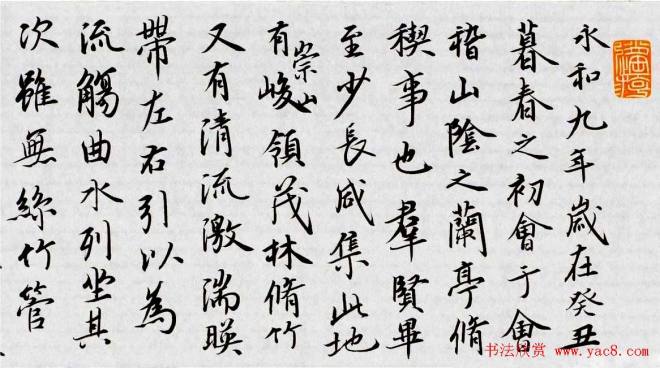 永和九年歲在癸丑
暮春之初會于會
稽山陰之蘭亭脩
稧事也羣賢畢
至少長咸集此地
有崇山峻領茂林脩竹
又有清流激湍暎
帶左右引以為
流觴曲水列坐其
次雖無絲竹管
书法欣赏 www.yac8.com